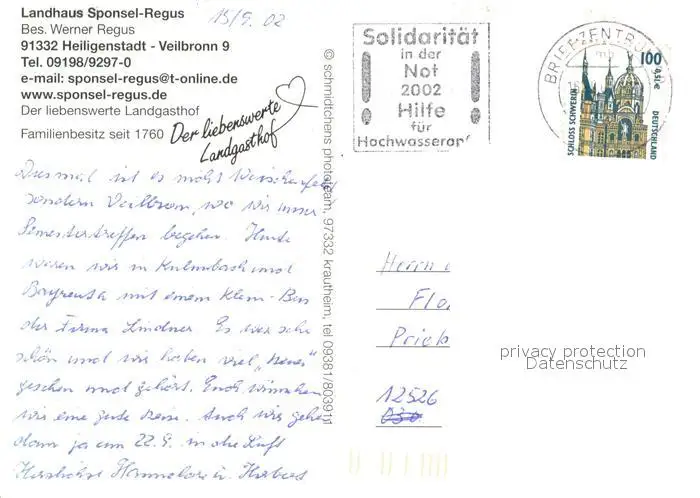 Landhaus Sponsel-Regus
Bes. Werner Regus
91332 Heiligenstadt - Veilbronn 9
Tel. 09198/9297-0
e-mail: sponsel-regus@t-online.de
www.sponsel-regus.de
Der liebenswerte Landgasthof
Familienbesitz seit 1760
Der liebenswerte
Landgasthof
15/9. 02
Diesmal ist es nicht
sondern Veilbronn, wo wir unser
Semestertreffen begehen. Heute
waren wir in Kulmbach und
Bayreuth mit einem Klein-Bus
der Firma Lindner. Es war sehr
schön und wir haben viel „Neues"
gesehen und gehört. Euch wünschen
wir eine gute Reise. Auch wir gehen
dann ja am 22.9. in die Luft
Herzlichst Hannelore u. Herbert
© schmidtchens phototeam, 97332 krautheim, tel 09381/803911
Solidarität
in der
Not
2002
Hilfe
für
Hochwasseropf
BRIEFZENTRUM
100
0,51€
SCHLOSS SCHWERIN
DEUTSCHLAND
Herrn
Flo
Prieb
12526
privacy protection
Datenschutz